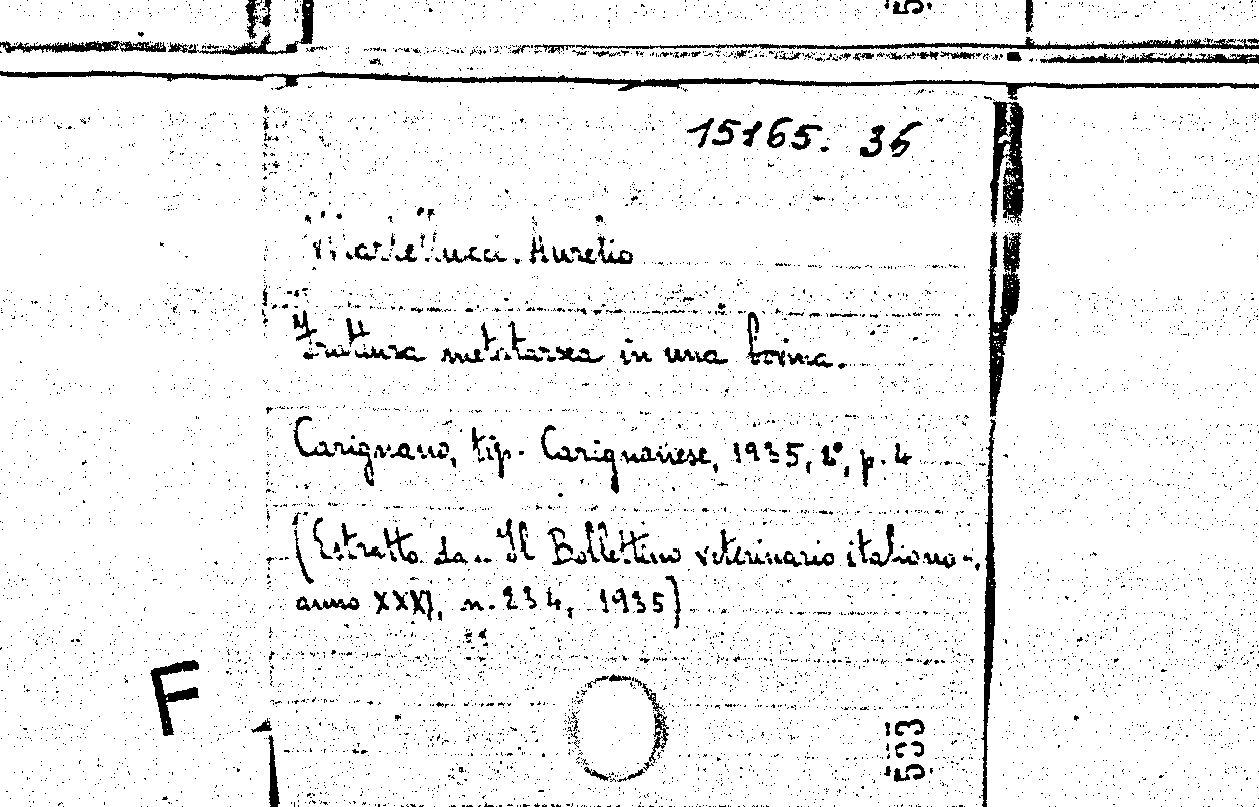 15165. 35
Martellucci. Aurelio
Frattura metatarsea in una bovina.
Carignano, tip. Carignanese, 1935, 8°, p. 4
(Estratto da „ Il Bollettino veterinario italiano -,
anno XXXI, n. 234, 1935)
F
533